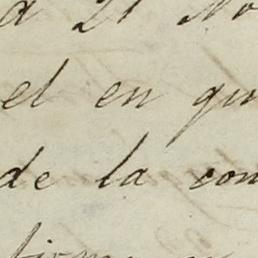 a 21 No
el en qu
de la con
firma